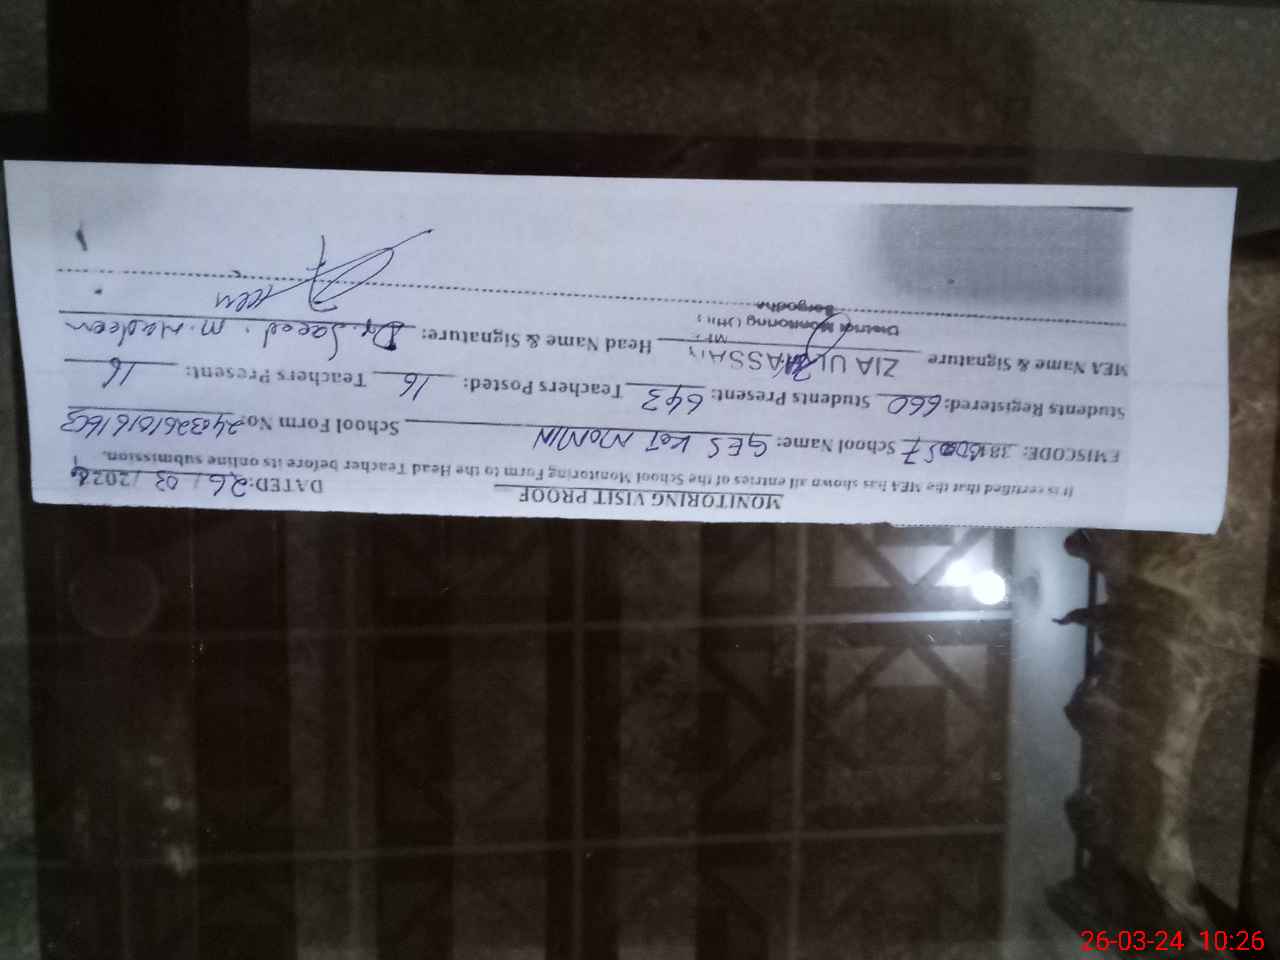 MONITORING VISIT PROOF
DATED: 26 / 03 / 2024
It is certified that the MEA has shown all entries of the School Monitoring Form to the Head Teacher before its online submission.
EMISCODE: School Name: GES KOT MOMIN School Form No:
Students Registered: 660 Students Present: 643 Teachers Posted: 16 Teachers Present: 16
MEA Name & Signature ZIA UL Head Name & Signature: Dr. Saeed. M. Nadeem
District Monitoring
Sargodha
26-03-24 10:26